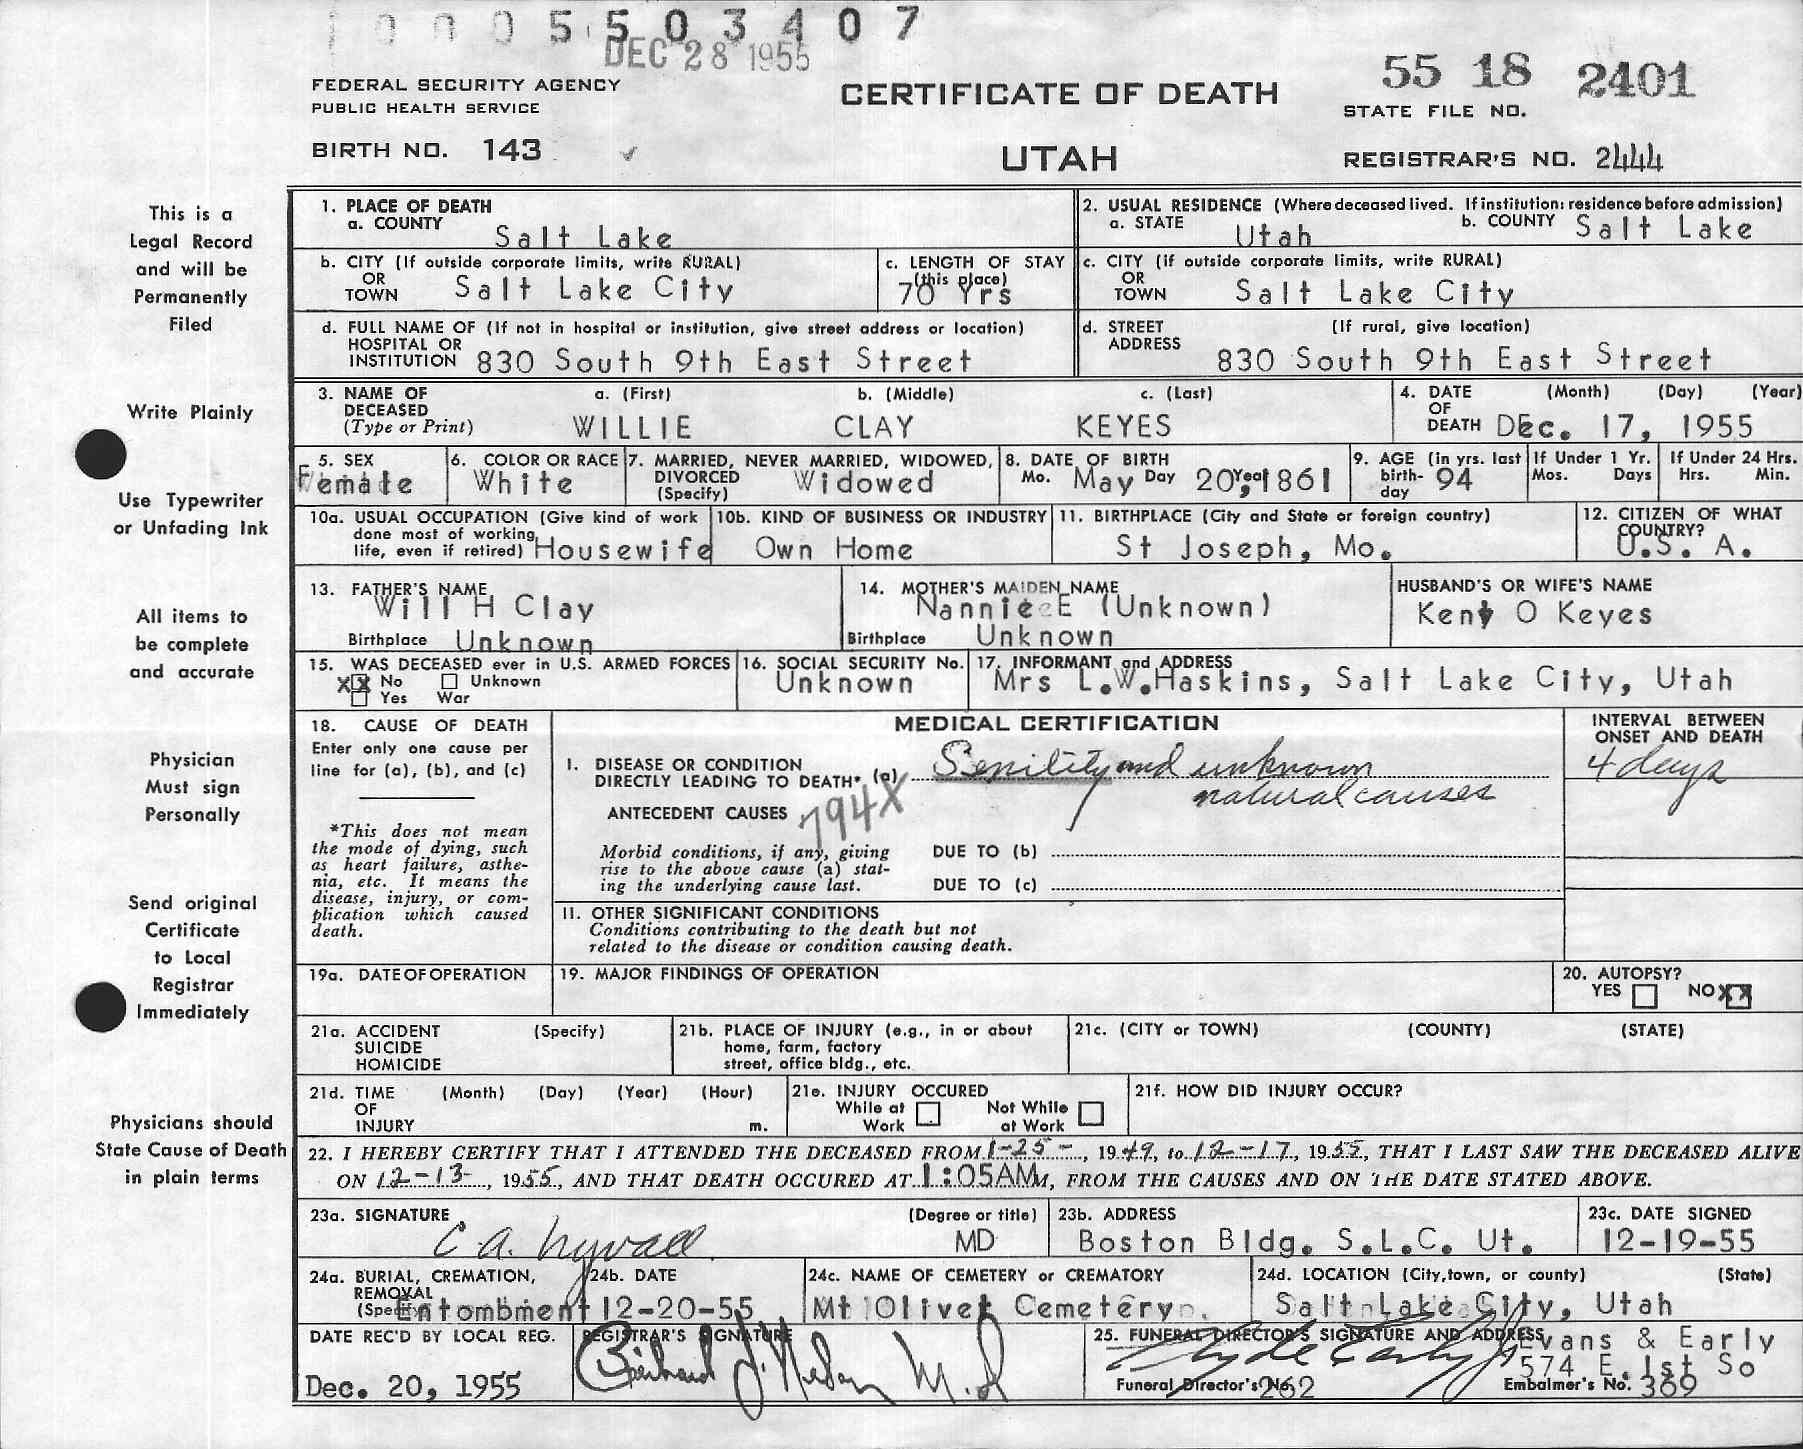 1 0 0 0 5 5 0 3 4 0 7
DEC 28 1955
FEDERAL SECURITY AGENCY
PUBLIC HEALTH SERVICE
CERTIFICATE OF DEATH
55 18 2401
STATE FILE NO.
BIRTH NO. 143
UTAH
REGISTRAR'S NO. 2444
This is a
Legal Record
and will be
Permanently
Filed
Write Plainly
Use Typewriter
or Unfading Ink
All items to
be complete
and accurate
Physician
Must sign
Personally
Send original
Certificate
to Local
Registrar
Immediately
Physicians should
State Cause of Death
in plain terms
1. PLACE OF DEATH
a. COUNTY Salt Lake
2. USUAL RESIDENCE (Where deceased lived. If institution: residence before admission)
a. STATE Utah b. COUNTY Salt Lake
b. CITY (If outside corporate limits, write RURAL)
OR
TOWN Salt Lake City
c. LENGTH OF STAY
(this place)
70 Yrs
c. CITY (if outside corporate limits, write RURAL)
OR
TOWN Salt Lake City
d. FULL NAME OF (If not in hospital or institution, give street address or location)
HOSPITAL OR
INSTITUTION 830 South 9th East Street
d. STREET (If rural, give location)
ADDRESS 830 South 9th East Street
3. NAME OF a. (First) b. (Middle) c. (Last)
DECEASED
(Type or Print) WILLIE CLAY KEYES
4. DATE (Month) (Day) (Year)
OF
DEATH Dec. 17, 1955
5. SEX
Female
6. COLOR OR RACE
White
7. MARRIED, NEVER MARRIED, WIDOWED,
DIVORCED Widowed
(Specify)
8. DATE OF BIRTH
Mo. May Day 20, Year 1861
9. AGE (in yrs. last
birth-
day 94
If Under 1 Yr.
Mos. Days
If Under 24 Hrs.
Hrs. Min.
10a. USUAL OCCUPATION (Give kind of work
done most of working
life, even if retired) Housewife
10b. KIND OF BUSINESS OR INDUSTRY
Own Home
11. BIRTHPLACE (City and State or foreign country)
St Joseph, Mo.
12. CITIZEN OF WHAT
COUNTRY?
U.S. A.
13. FATHER'S NAME
Will H Clay
Birthplace Unknown
14. MOTHER'S MAIDEN NAME
Nannie E (Unknown)
Birthplace Unknown
HUSBAND'S OR WIFE'S NAME
Kent O Keyes
15. WAS DECEASED ever in U.S. ARMED FORCES
XX No Unknown
Yes War
16. SOCIAL SECURITY No.
Unknown
17. INFORMANT and ADDRESS
Mrs L.W.Haskins, Salt Lake City, Utah
18. CAUSE OF DEATH
Enter only one cause per
line for (a), (b), and (c)
*This does not mean
the mode of dying, such
as heart failure, asthe-
nia, etc. It means the
disease, injury, or com-
plication which caused
death.
MEDICAL CERTIFICATION
INTERVAL BETWEEN
ONSET AND DEATH
I. DISEASE OR CONDITION
DIRECTLY LEADING TO DEATH* (a) Senility and unknown
natural causes
4 days
794X
ANTECEDENT CAUSES
Morbid conditions, if any, giving
rise to the above cause (a) stat-
ing the underlying cause last.
DUE TO (b)
DUE TO (c)
II. OTHER SIGNIFICANT CONDITIONS
Conditions contributing to the death but not
related to the disease or condition causing death.
19a. DATE OF OPERATION
19. MAJOR FINDINGS OF OPERATION
20. AUTOPSY?
YES NO XX
21a. ACCIDENT (Specify)
SUICIDE
HOMICIDE
21b. PLACE OF INJURY (e.g., in or about
home, farm, factory
street, office bldg., etc.
21c. (CITY or TOWN) (COUNTY) (STATE)
21d. TIME (Month) (Day) (Year) (Hour)
OF
INJURY m.
21e. INJURY OCCURED
While at Not While
Work at Work
21f. HOW DID INJURY OCCUR?
22. I HEREBY CERTIFY THAT I ATTENDED THE DECEASED FROM 1-25-, 1949, to 12-17, 1955, THAT I LAST SAW THE DECEASED ALIVE
ON 12-13-, 1955, AND THAT DEATH OCCURED AT 1:05AM M, FROM THE CAUSES AND ON THE DATE STATED ABOVE.
23a. SIGNATURE (Degree or title)
C.A. Nyvall MD
23b. ADDRESS
Boston Bldg. S.L.C. Ut.
23c. DATE SIGNED
12-19-55
24a. BURIAL, CREMATION,
REMOVAL
(Specify) Entombment
24b. DATE
12-20-55
24c. NAME OF CEMETERY or CREMATORY
Mt Olivet Cemetery
24d. LOCATION (City, town, or county) (State)
Salt Lake City, Utah
DATE REC'D BY LOCAL REG.
Dec. 20, 1955
REGISTRAR'S SIGNATURE
M.D
25. FUNERAL DIRECTOR'S SIGNATURE AND ADDRESS
Evans & Early
574 E. 1st So
Funeral Director's No. 262
Embalmer's No. 369